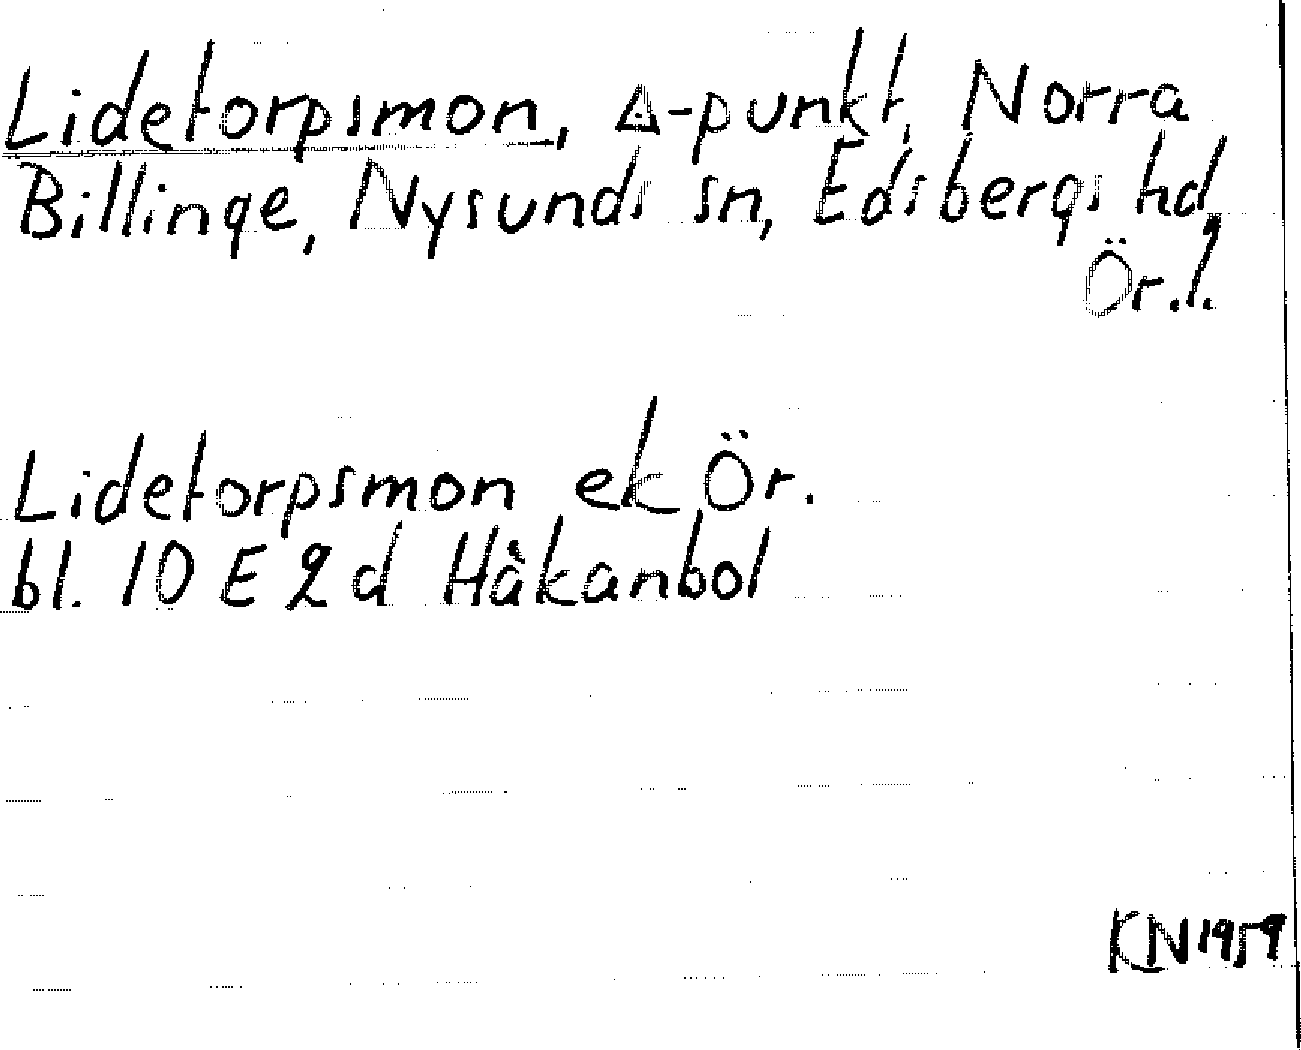 Lidetorpsmon, Δ-punkt, Norra
Billinge, Nysunds sn, Edsbergs hd,
Ör.l.
Lidetorpsmon ek Ör.
bl. 10 E 2 d Håkanbol
KN 1959